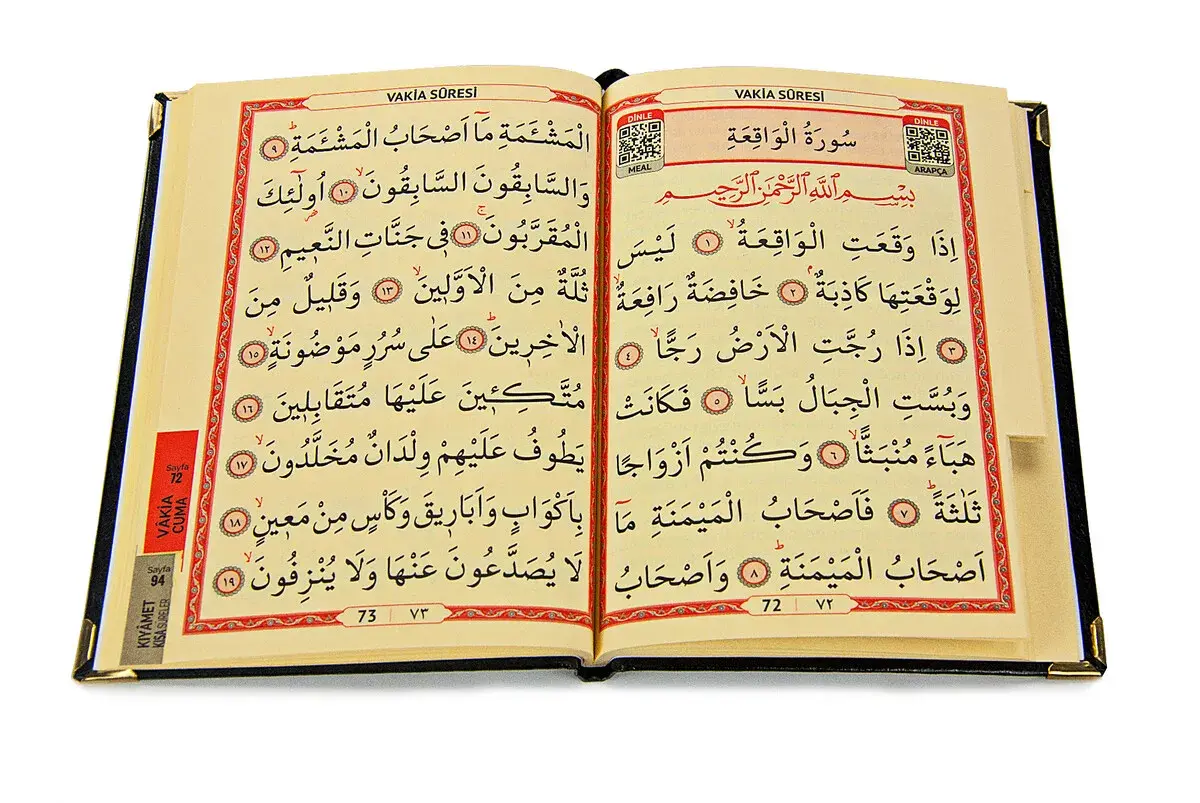 VAKİA SÛRESİ
DİNLE
MEAL
سُورَةُ الْوَاقِعَةِ
DİNLE
ARAPÇA
بِسْمِ اللّٰهِ الرَّحْمٰنِ الرَّحِيمِ
اِذَا وَقَعَتِ الْوَاقِعَةُ ۙ ١ لَيْسَ
لِوَقْعَتِهَا كَاذِبَةٌ ۢ ٢ خَافِضَةٌ رَافِعَةٌ ۙ
٣ اِذَا رُجَّتِ الْاَرْضُ رَجًّا ۙ ٤
وَبُسَّتِ الْجِبَالُ بَسًّا ۙ ٥ فَكَانَتْ
هَبَٓاءً مُنْبَثًّا ۙ ٦ وَكُنْتُمْ اَزْوَاجًا
ثَلٰثَةً ۜ ٧ فَاَصْحَابُ الْمَيْمَنَةِ مَٓا
اَصْحَابُ الْمَيْمَنَةِ ۜ ٨ وَاَصْحَابُ
72 | ٧٢
VAKİA SÛRESİ
الْمَشْـَٔمَةِ مَٓا اَصْحَابُ الْمَشْـَٔمَةِ ۜ ٩
وَالسَّابِقُونَ السَّابِقُونَ ۙ ١٠ اُولٰٓئِكَ
الْمُقَرَّبُونَ ۚ ١١ فِي جَنَّاتِ النَّعِيمِ ١٢
ثُلَّةٌ مِنَ الْاَوَّلِينَ ۙ ١٣ وَقَلِيلٌ مِنَ
الْاٰخِرِينَ ۜ ١٤ عَلٰى سُرُرٍ مَوْضُونَةٍ ۙ ١٥
مُتَّكِـِٔينَ عَلَيْهَا مُتَقَابِلِينَ ١٦
يَطُوفُ عَلَيْهِمْ وِلْدَانٌ مُخَلَّدُونَ ۙ ١٧
بِاَكْوَابٍ وَاَبَارِيقَ وَكَأْسٍ مِنْ مَعِينٍ ۙ ١٨
لَا يُصَدَّعُونَ عَنْهَا وَلَا يُنْزِفُونَ ۙ ١٩
73 | ٧٣
Sayfa
72
VÂKİA
CUMA
Sayfa
94
KIYÂMET
KISA SURELER